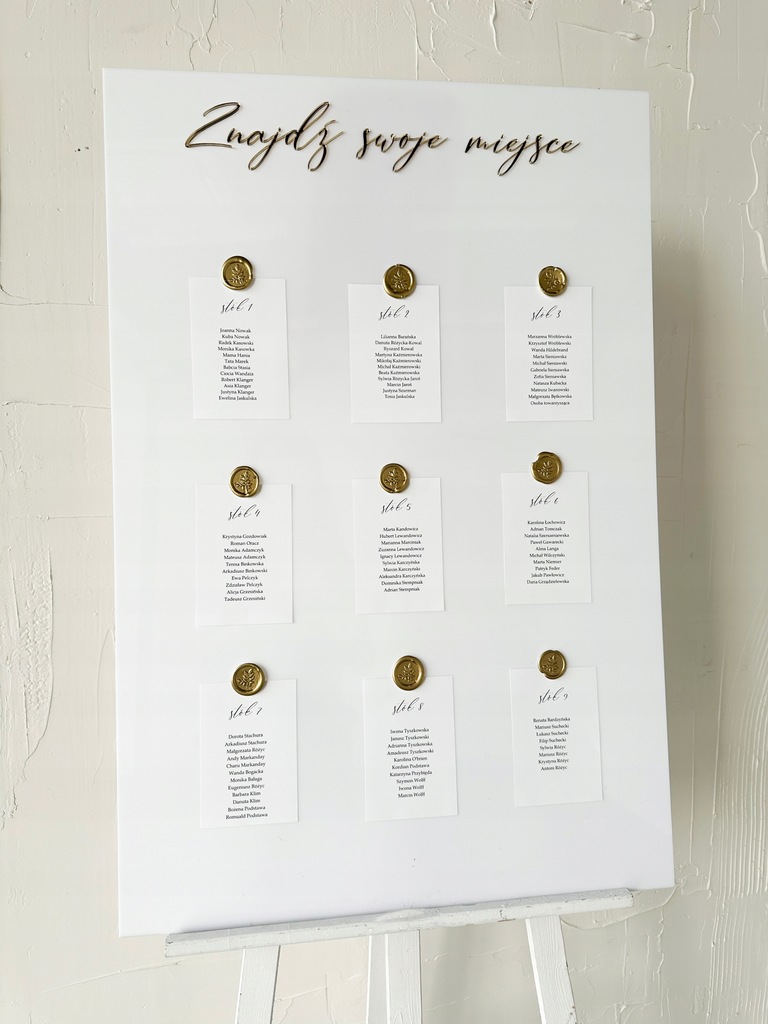 Znajdź swoje miejsce
stół 1
Joanna Nowak
Kuba Nowak
Radek Kasowski
Monika Kasowska
Mama Hania
Tata Marek
Babcia Stasia
Ciocia Wandzia
Robert Klanger
Asia Klanger
Justyna Klanger
Ewelina Jaskulska
stół 2
Lilianna Barańska
Danuta Różycka-Kowal
Ryszard Kowal
Martyna Kaźmierowska
Mikołaj Kaźmierowski
Michał Kaźmierowski
Beata Kaźmierowska
Sylwia Różycka-Jaroś
Marcin Jaroś
Justyna Szurman
Tosia Jaskulska
stół 3
Marzanna Wróblewska
Krzysztof Wróblewski
Wanda Hildebrand
Marta Sieniawska
Michał Sieniawski
Gabriela Sieniawska
Zofia Sieniawska
Natasza Kubacka
Mateusz Iwanowski
Małgorzata Bętkowska
Osoba towarzysząca
stół 4
Krystyna Gozdowiak
Roman Oracz
Monika Adamczyk
Mateusz Adamczyk
Teresa Bińkowska
Arkadiusz Bińkowski
Ewa Pelczyk
Zdzisław Pelczyk
Alicja Grzesińska
Tadeusz Grzesiński
stół 5
Marta Kandowicz
Hubert Lewandowicz
Marianna Marciniak
Zuzanna Lewandowicz
Ignacy Lewandowicz
Sylwia Karczyńska
Marcin Karczyński
Aleksandra Karczyńska
Dominika Stempniak
Adrian Stempniak
stół 6
Karolina Łochowicz
Adrian Tomczak
Natalia Szersaniewska
Paweł Gawarecki
Alina Langa
Michał Wilczyński
Marta Niemier
Patryk Feder
Jakub Pawłowicz
Daria Grządzielewska
stół 7
Dorota Stachura
Arkadiusz Stachura
Małgorzata Różyc
Andy Markanday
Charu Markanday
Wanda Bogacka
Monika Bałaga
Eugeniusz Różyc
Barbara Klim
Danuta Klim
Bożena Podstawa
Romuald Podstawa
stół 8
Iwona Tyszkowska
Janusz Tyszkowski
Adrianna Tyszkowska
Amadeusz Tyszkowski
Karolina O'brien
Kordian Podstawa
Katarzyna Przybłęda
Szymon Wolff
Iwona Wolff
Marcin Wolff
stół 9
Renata Bardzyńska
Mariusz Suchecki
Łukasz Suchecki
Filip Suchecki
Sylwia Różyc
Mariusz Różyc
Krystyna Różyc
Antoni Różyc